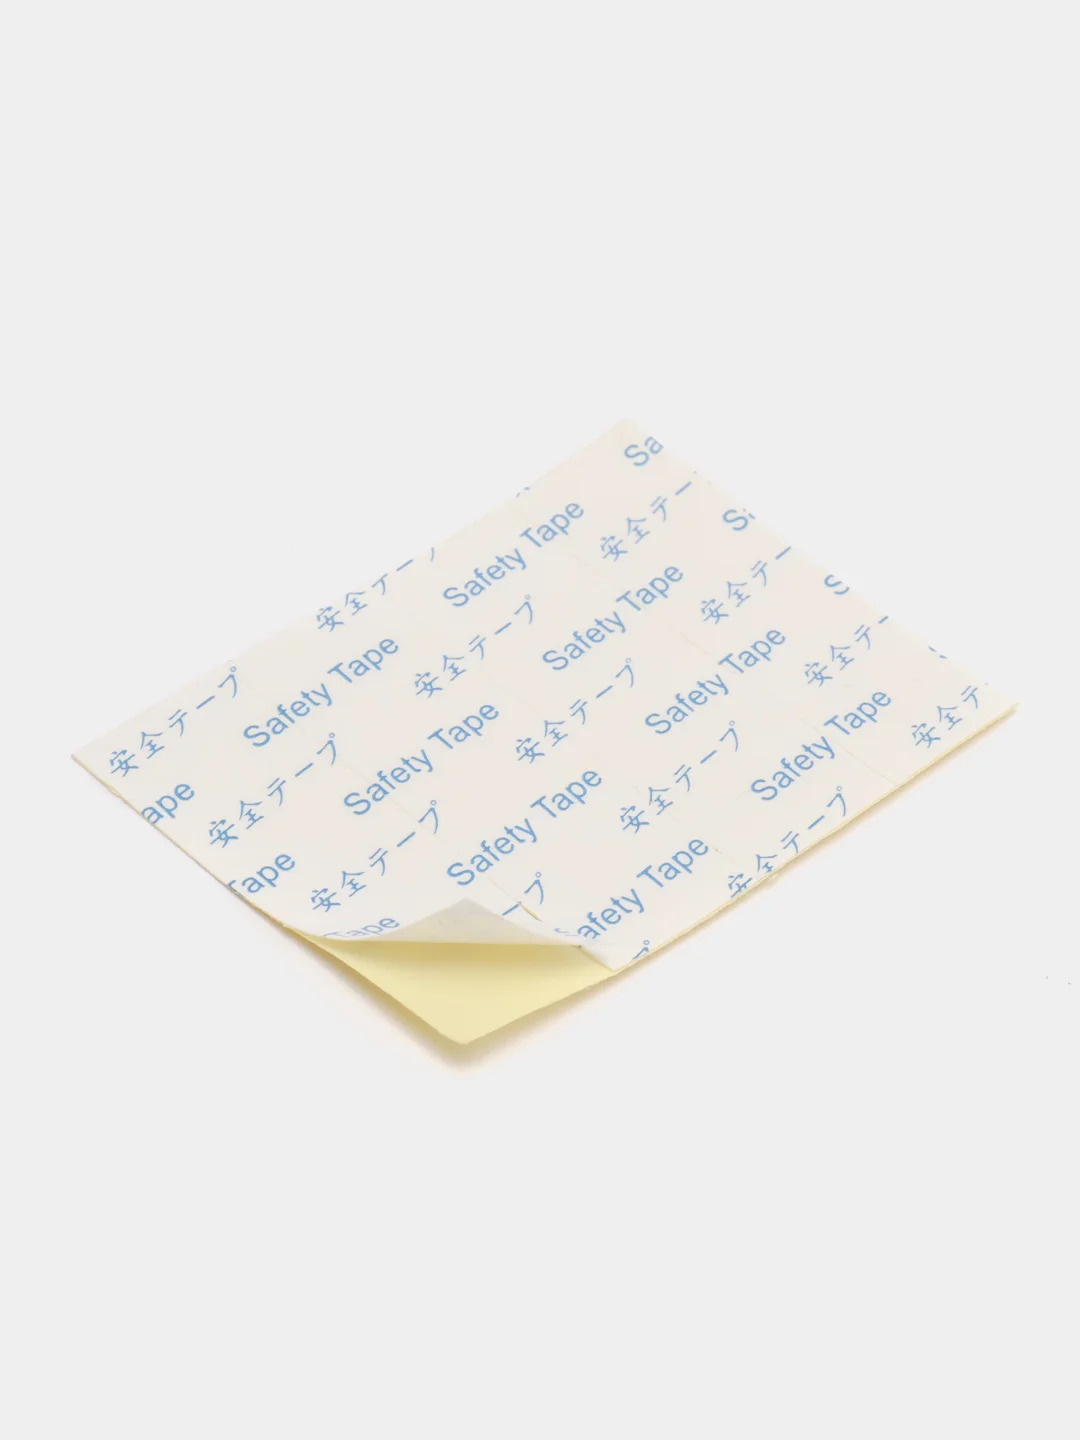 Sa
安全テー
Safety Tape
安全テー
Safety Tape
安全テー
安全テープ
Safety Tape
安全テー
安全テープ
Safety Tape
Safety Tape
安全テー
安全テープ
Safety Tape
Safety Tape
安全テープ
安全テープ
ape
Safety Tape
安全テープ
安全テープ
Tape
afety Tape
安全テープ
Tape